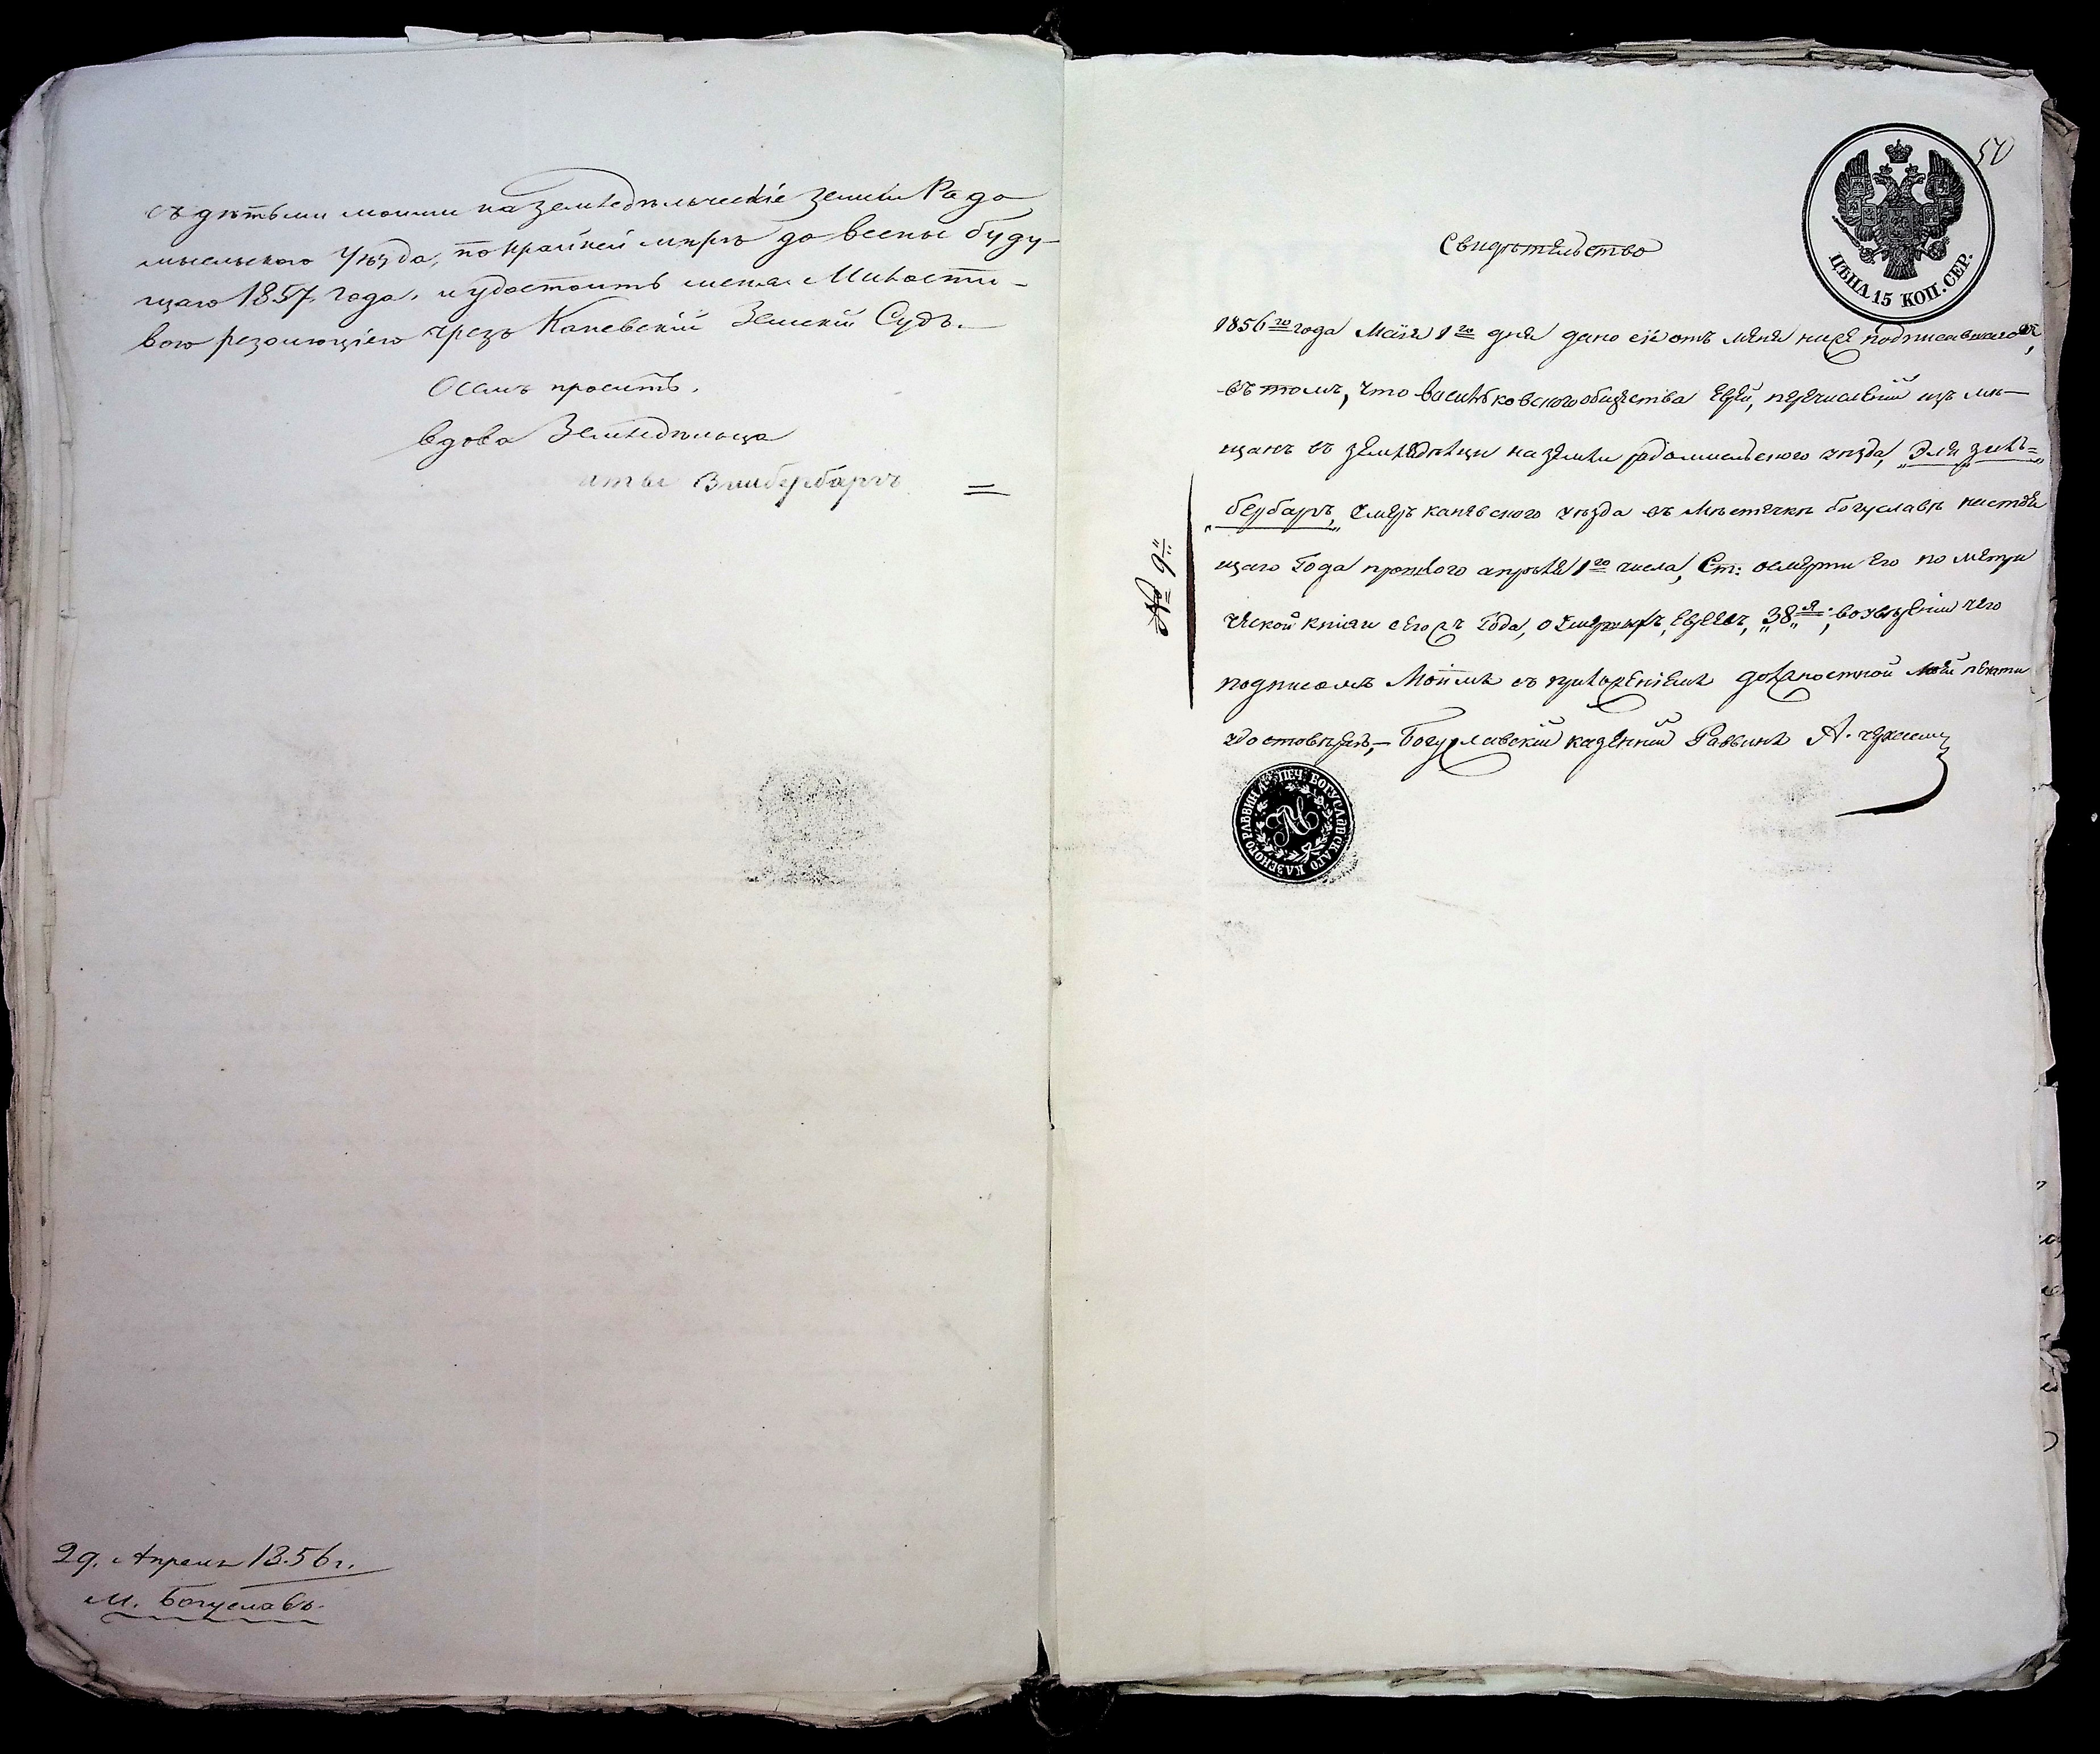 съ дѣтьми моими на Земледѣльческіе земли Радо
мысльского Уѣзда, по крайней мѣрѣ до весны буду-
щаго 1857 года, и удостоить меня Милости-
вою резолюціею чрезъ Каневскій Земскій Судъ.—
О семъ проситъ.
вдова Земледѣльца
Зильбербаргъ
29. Апреля 1856 г.
М. Богуславъ.
50
ЦѢНА 15 КОП. СЕР.
Свидѣтельство
1856го года Маія 1го дня дано сіе отъ меня ниже подписавшагося,
въ томъ, что васильковского общества Еврей, перечисленій изъ мѣ-
щанъ въ земледѣлци на земли радомысльского уезда, „Эля зиль="
„бербарг," Умеръ каневского уезда въ мѣстечкѣ богуславѣ настоя
щаго Года прошлого апрѣля 1го числа, Ст: о смерти Его по метри
ческой книги сего жъ Года, о Умершихъ, Евреев, „38я"; во увѣреніи чего
подписомъ Моимъ съ приложеніемъ должностной моей печати
удостоверяю,— Богуславскій казенній Раввинъ А.
№ 9"
ПЕЧ. БОГУСЛАВСКАГО КАЗЕННОГО РАВВИНА